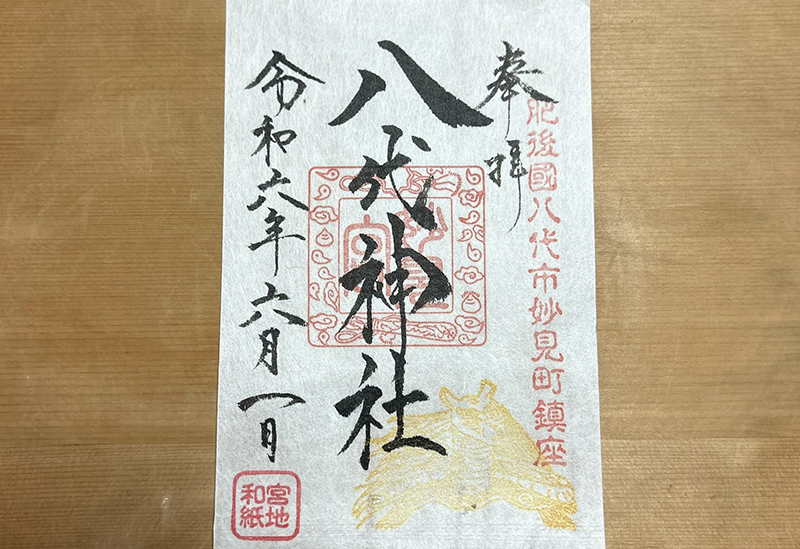 奉拝
肥後國八代市妙見町鎮座
八代神社
令和六年六月一日
宮地
和紙